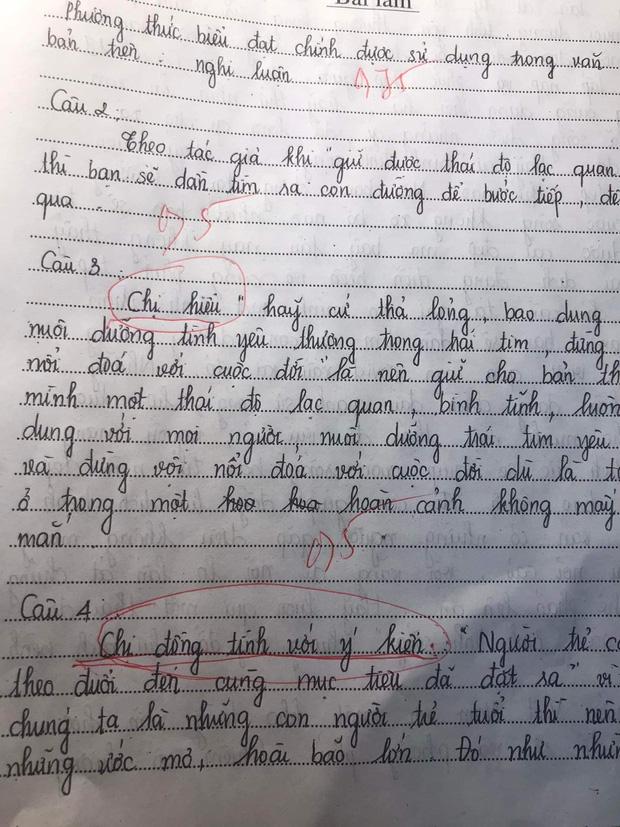 Bài làm
Phương thức biểu đạt chính được sử dụng trong văn
bản trên : nghị luận
0,75
Câu 2 :
Theo tác giả khi "giữ được thái độ lạc quan
thì bạn sẽ dần tìm ra con đường để bước tiếp, để
qua
0,5
Câu 3 :
Chị hiểu " hãy cứ thả lỏng, bao dung
nuôi dưỡng tình yêu thương trong trái tim, đừng
nổi đoá với cuộc đời" là nên giữ cho bản th
mình một thái độ lạc quan, bình tĩnh, luôn
dung với mọi người nuôi dưỡng trái tim yêu
và đừng vội nổi đoá với cuộc đời dù là t
ở trong một hoà hoa hoàn cảnh không may
mắn
0,5
Câu 4 :
Chị đồng tình với ý kiến : "Người trẻ c
theo đuổi đến cùng mục tiêu đã đặt ra" vì
chúng ta là những con người trẻ tuổi thì nên
những ước mơ, hoài bão lớn. Đó như nhữ